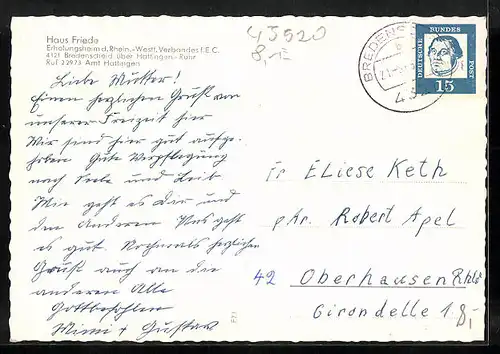 Haus Friede
Erholungsheim d. Rhein.-Westf. Verbandes f. E. C.
4321 Bredenscheid über Hattingen-Ruhr
Ruf 22973 Amt Hattingen
45920
8,-
BREDENS
DEUTSCHE BUNDES POST
15
Liebe Mutter!
Einen herzlichen Gruß von
unserer Freizeit hier
Wir sind hier gut aufge-
hoben Gute Verpflegung
nach Seele und Leib
Wie geht es Dir und
den Anderen Uns geht
es gut. Nochmals herzlichen
Gruß auch an die
anderen Alle
Gottbefohlen
Mimi + Gustav
Fr ELiese Keth
p.Adr. Robert Apel
42 Oberhausen Rhld
Girondelle 18
8,-